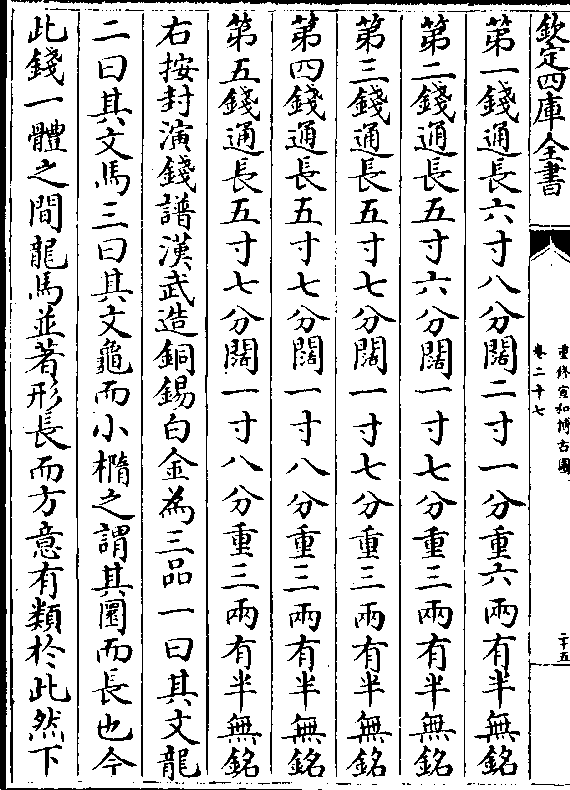 欽定四庫全書
重修宣和博古圖
卷二十七
二十五
第一錢通長六寸八分闊二寸一分重六兩有半無銘
第二錢通長五寸六分闊一寸七分重三兩有半無銘
第三錢通長五寸七分闊一寸七分重三兩有半無銘
第四錢通長五寸七分闊一寸八分重三兩有半無銘
第五錢通長五寸七分闊一寸八分重三兩有半無銘
右按封演錢譜漢武造銅錫白金為三品一曰其文龍
二曰其文馬三曰其文龜而小橢之謂其圜而長也今
此錢一體之間龍馬並著形長而方意有類於此然下